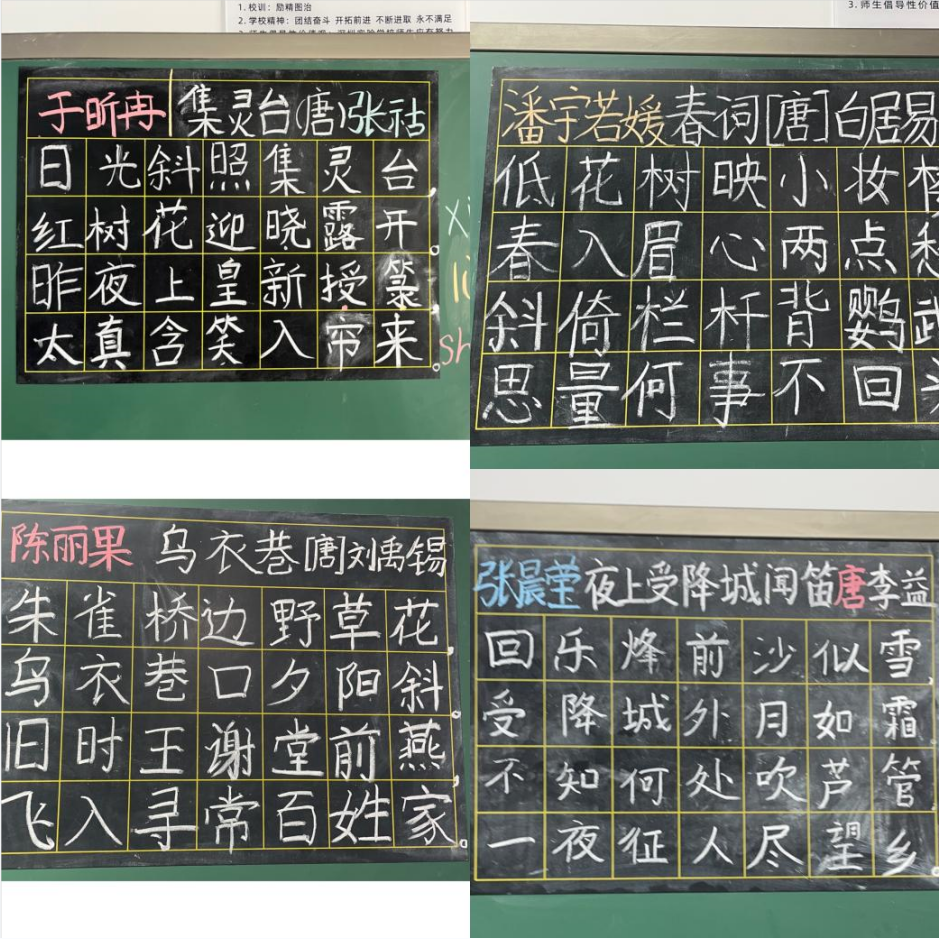 1. 校训：励精图治
2. 学校精神：团结奋斗 开拓前进 不断进取 永不满足
于昕冉 集灵台(唐)张祜
日光斜照集灵台
红树花迎晓露开
昨夜上皇新授箓
太真含笑入帘来
3. 师生倡导性价值
潘宇若媛 春词[唐]白居易
低花树映小妆
春入眉心两点愁
斜倚栏杆背鹦武
思量何事不回
陈丽果 乌衣巷[唐]刘禹锡
朱雀桥边野草花，
乌衣巷口夕阳斜。
旧时王谢堂前燕，
飞入寻常百姓家。
张晨莹 夜上受降城闻笛 唐 李益
回乐烽前沙似雪，
受降城外月如霜。
不知何处吹芦管，
一夜征人尽望乡。